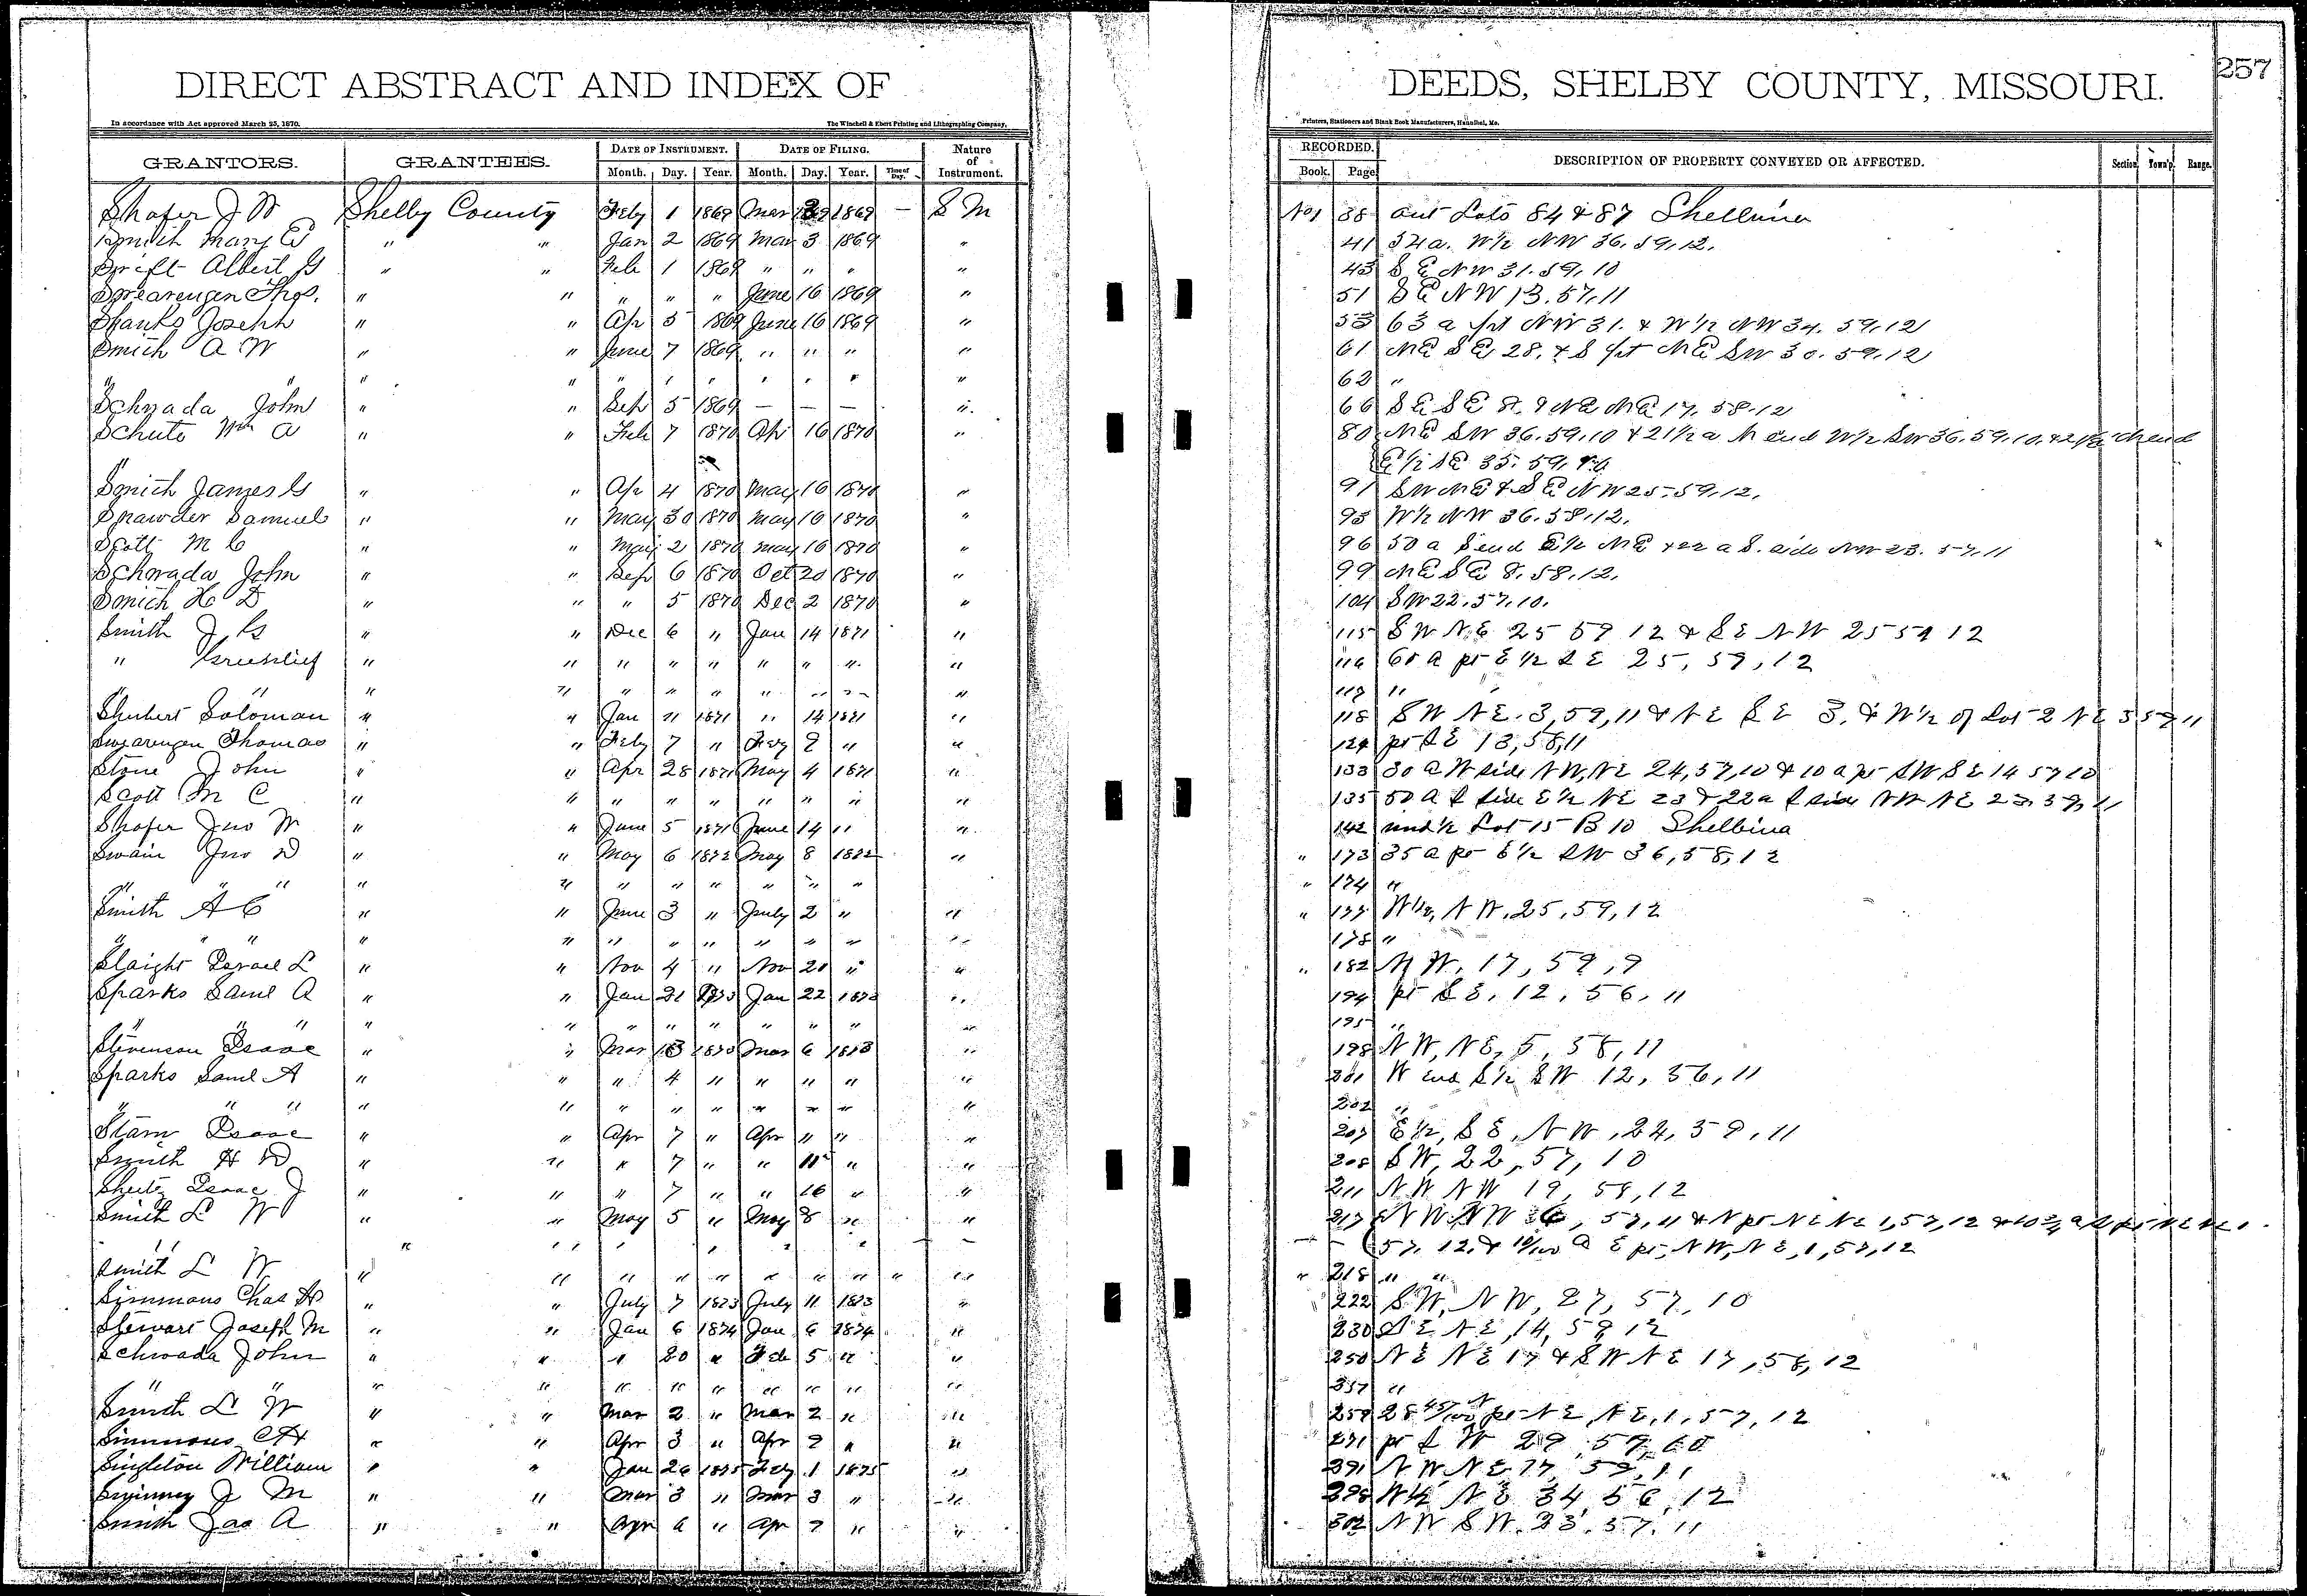 DIRECT ABSTRACT AND INDEX OF DEEDS, SHELBY COUNTY, MISSOURI. 257
In accordance with Act approved March 25, 1870. The Winchell & Ebert Printing and Lithographing Company, Printers, Stationers and Blank Book Manufacturers, Hannibal, Mo.
GRANTORS. GRANTEES. DATE OF INSTRUMENT. DATE OF FILING. Nature of Instrument. RECORDED. DESCRIPTION OF PROPERTY CONVEYED OR AFFECTED. Section. Town'p. Range.
Month. Day. Year. Month. Day. Year. Time of Day. Book. Page
Shafer J W Shelby County Feby 1 1869 Mar 1869 — S M No1 38 out Lots 84 & 87 Shelbina
Smith Mary E " " Jan 2 1869 Mar 3 1869 " 41 34 a. W½ NW 36.59.12.
Swift Albert G " " Feb 1 1869 " " " " 43 S E NW 31.59.10
Swearengen Thos. " " " " " June 16 1869 " 51 S E NW 13.57.11
Shanks Joseph " " Apr 5 1869 June 16 1869 " 53 63 a pt NW 31. & W½ NW 34. 59.12
Smith A W " " June 7 1869 " " " " 61 NE SE 28. & S pt NE SW 30.59.12
" " " " " " " " " " " 62 "
Schwada John " " Sep 5 1869 — — — " 66 SE SE 8. & NE NE 17. 58.12
Schutz Wm A " " Feb 7 1870 Apr 16 1870 " 80 NE SW 36.59.10 & 21½ a N end W½ SW 36.59.10. N end
E½ SE 35.59.10
Smith James G " " Apr 4 1870 May 16 1870 " 91 SW NE & SE NW 25-59.12.
Sparwder Samuel " " May 30 1870 May 16 1870 " 93 W½ NW 36.58.12.
Scott M C " " May 2 1870 May 16 1870 " 96 50 a S end E½ NE & 22 a S. side NW 23. 57.11
Schwada John " " Sep 6 1870 Oct 20 1870 " 99 NE SE 8.58.12.
Smith H D " " " 5 1870 Dec 2 1870 " 104 SW 22.57.10.
Smith J G " " Dec 6 " Jan 14 1871 " 115 S W N E 25 59 12 & S E N W 25 59 12
" Greenlief " " " " " " " " " 116 60 a pr E ½ S E 25, 59, 12
" " " " " " " " " " " 117 "
Shubert Soloman " " Jan 11 1871 " 14 1871 " 118 S W N E. 3, 59, 11 & N E S E 3. & W½ of Lot 2 N E 3 59 11
Swearengen Thomas " " Feby 7 " Feby 9 " " 124 pr S E 13, 58, 11
Stone John " " Apr 28 1871 May 4 1871 " 133 30 a W side N W, N E 24, 57, 10 & 10 a pr S W S E 14 57 10
Scott M C " " " " " " " " " 135 50 a S side E ½ N E 23 & 22 a S side N W N E 23, 59, 11
Shafer Jno W " " June 5 1871 June 14 " " 142 und ½ Lot 15 B 10 Shelbina
Swain Jno D " " May 6 1872 May 8 1872 " " 173 35 a pr E ½ S W 36, 58, 12
" " " " " " " " " " " " 174 "
Smith A C " " June 3 " July 2 " " " 177 W½, N W, 25, 59, 12
" " " " " " " " " " " " 178 "
Slaight Israel L " " Nov 4 " Nov 20 " " " 182 N W, 17, 59, 9
Sparks Saml A " " Jan 21 1873 Jan 22 1873 " 194 pr S E, 12, 56, 11
" " " " " " " " " " " " 195 "
Stevenson Isaac " " Mar 1873 Mar 6 1873 " 198 N W, N E, 5, 58, 11
Sparks Saml A " " " 4 " " " " " 201 W end S ½ S W 12, 56, 11
" " " " " " " " " " " " 202 "
Starn Isaac " " Apr 7 " Apr " " " 207 E½, S E, N W, 24, 59, 11
Smith H D " " " 7 " " 11 " " 208 S W, 22, 57, 10
Sheetz Isaac J " " " 7 " " 16 " " 211 N W N W 19, 58, 12
Smith L W " " May 5 " May 8 " " 217 N W N W 6, 57, 11 & N pr N E N E 1, 57, 12
57, 12, & a E pr N W, N E, 1, 57, 12
Smith L W " " " " " " " " " " " 218 " "
Simmons Chas H " " July 7 1873 July 11 1873 " 222 S W, N W, 27, 57, 10
Stewart Joseph M " " Jan 6 1874 Jan 6 1874 " 230 S E N E, 14, 59, 12
Schwada John " " " 20 " Feb 5 " " 250 N E N E 17 & S W N E 17, 58, 12
" " " " " " " " " " " "
Smith L W " " Mar 2 " Mar 2 " " 259 28 45/100 pr N E, N E, 1, 57, 12
Simmons C H " " Apr 3 " Apr 9 " " 271 pr S W 29, 57, 10
Singleton William " " Jan 26 1875 Feby 1 1875 " 291 N W N E 17, 59, 11
Swinney J M " " Mar 3 " Mar 3 " " 298 W½ N E 34, 56, 12
Smith Jas A " " Apr 6 " Apr 7 " " 302 N W S W. 23. 57. 11